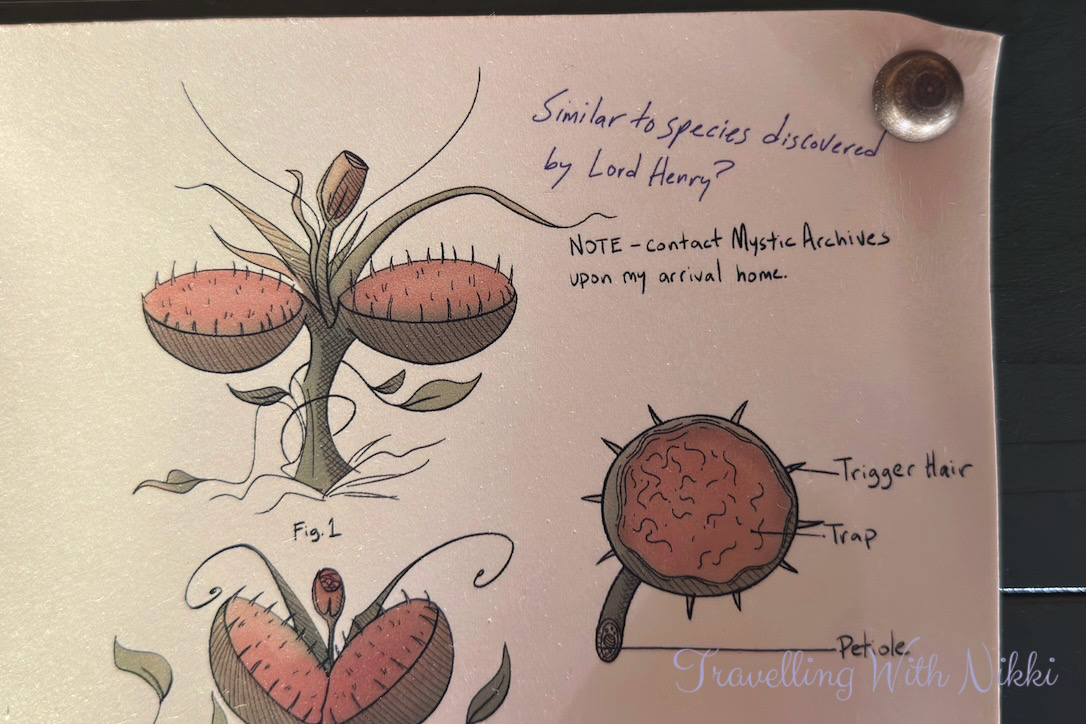 Similar to species discovered
by Lord Henry?
NOTE - contact Mystic Archives
upon my arrival home.
Fig. 1
Trigger Hair
Trap
Petiole.
Travelling With Nikki